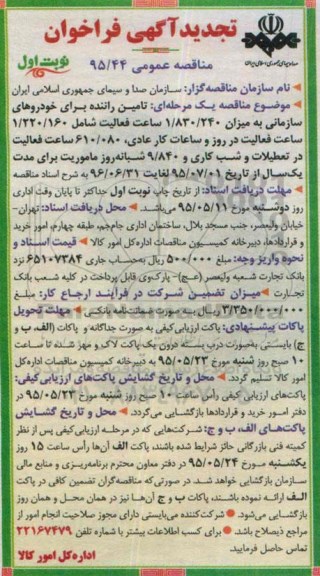 تجدیدآگهی فراخوان
مناقصه عمومی ۹۵/۴۴
نوبت اول
صدا و سیمای جمهوری اسلامی ایران
نام سازمان مناقصه‌گزار: سازمان صدا و سیمای جمهوری اسلامی ایران
موضوع مناقصه یک مرحله‌ای: تامین راننده برای خودروهای
سازمانی به میزان ۱/۸۳۰/۲۴۰ ساعت فعالیت شامل ۱/۲۲۰/۱۶۰
ساعت فعالیت در روز و ساعات کار عادی، ۶۱۰/۰۸۰ ساعت فعالیت
در تعطیلات و شب کاری و ۹/۸۴۰ شبانه‌روز ماموریت برای مدت
یک‌سال از تاریخ ۹۵/۰۷/۰۱ لغایت ۹۶/۰۶/۳۱ به شرح اسناد مناقصه
مهلت دریافت اسناد: از تاریخ چاپ نوبت اول حداکثر تا پایان وقت اداری
روز دوشنبه مورخ ۹۵/۰۵/۱۱ می‌باشد. محل دریافت اسناد: تهران-
خیابان ولیعصر، جنب مسجد بلال، ساختمان اداری جام‌جم، طبقه چهارم، امور خرید
و قراردادها، دبیرخانه کمیسیون مناقصات اداره کل امور کالا قیمت اسناد و
نحوه واریز وجه: مبلغ ۵۰۰/۰۰۰ ریال به‌حساب جاری ۶۵۱۰۷۳۸۴ نزد
بانک تجارت شعبه ولیعصر (عج)- پارک‌وی قابل پرداخت در کلیه شعب بانک
تجارت میزان تضمین شرکت در فرآیند ارجاع کار: مبلغ
۳/۳۵۰/۰۰۰/۰۰۰ ریال به صورت ضمانتنامه بانکی مهلت تحویل
پاکات پیشنهادی: پاکت ارزیابی‌کیفی به صورت جداگانه و پاکات (الف، ب و
ج) بایستی به‌صورت درب بسته درون یک پاکت لاک و مهر شده تا ساعت
۱۰ صبح روز شنبه مورخ ۹۵/۰۵/۲۳ به دبیرخانه کمیسیون مناقصات اداره‌کل
امور کالا تسلیم گردد. محل و تاریخ گشایش پاکت‌های ارزیابی‌کیفی:
پاکت‌های ارزیابی کیفی رأس ساعت ۱۰ صبح روز شنبه مورخ ۹۵/۰۵/۲۳ در
دفتر امور خرید و قراردادها بازگشایی می‌گردد. محل و تاریخ گشایش
پاکت‌های الف، ب و ج: شرکت‌هایی که در مرحله ارزیابی‌کیفی پس از نظر
کمیته فنی بازرگانی حائز شرایط شده باشند، پاکت الف آن‌ها رأس ساعت ۱۵ روز
یکشنبه مورخ ۹۵/۰۵/۲۴ در دفتر معاون محترم برنامه‌ریزی و منابع مالی
سازمان بازگشایی خواهد شد. در صورتی که مناقصه‌گران تضمین کافی در پاکت
الف ارائه نموده باشند، پاکات ب و ج آن‌ها نیز در همان محل و همان روز
بازگشایی می‌شود. شرکت‌کننده می‌بایستی دارای مجوز صلاحیت انجام امور از
مراجع ذیصلاح باشد. برای کسب اطلاعات بیشتر با شماره تلفن ۲۲۱۶۷۴۷۹
تماس حاصل فرمایید.
اداره کل امور کالا